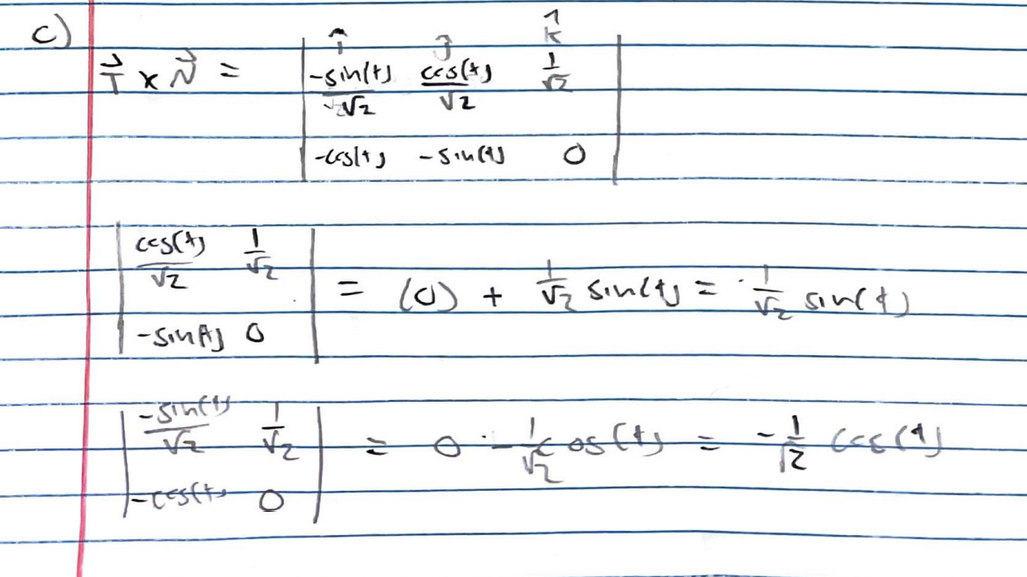 c)
î ĵ k̂
T⃗ × N⃗ = | -sin(t)/√2 cos(t)/√2 1/√2 |
| -cos(t) -sin(t) 0 |
| cos(t)/√2 1/√2 |
| -sin(t) 0 | = (0) + 1/√2 sin(t) = 1/√2 sin(t)
| -sin(t)/√2 1/√2 |
| -cos(t) 0 | = 0 - 1/√2 cos(t) = -1/√2 cos(t)